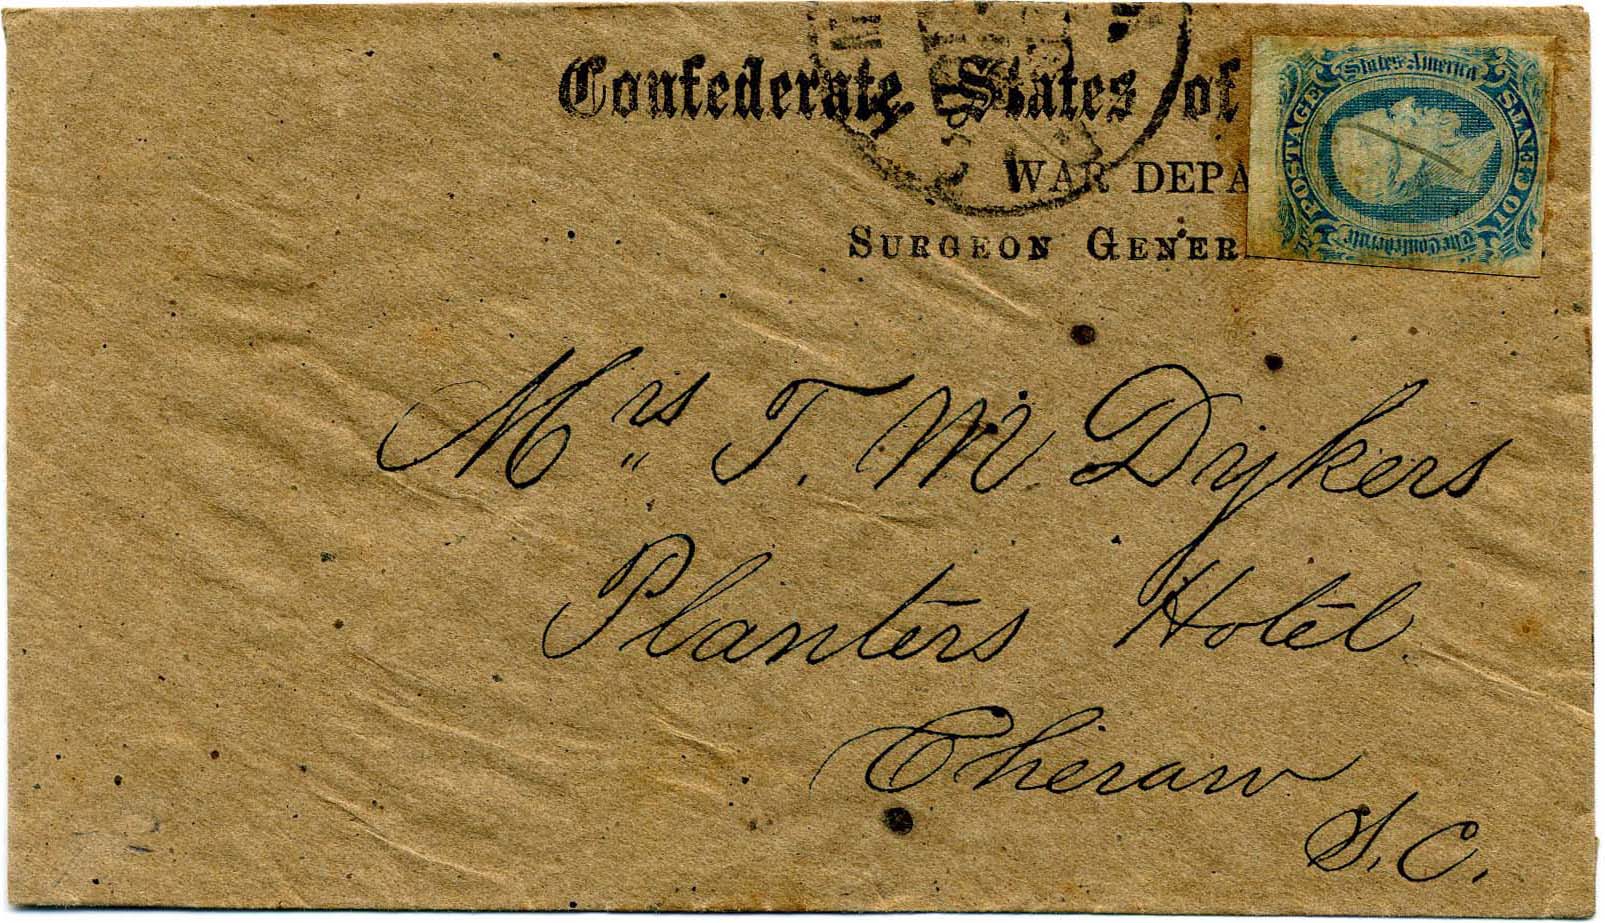 Confederate States of
WAR DEPA
SURGEON GENER
The Confederate
States America
POSTAGE
10 CENTS
Mrs T. M Dykers
Planters Hotel.
Cheraw
S. C.